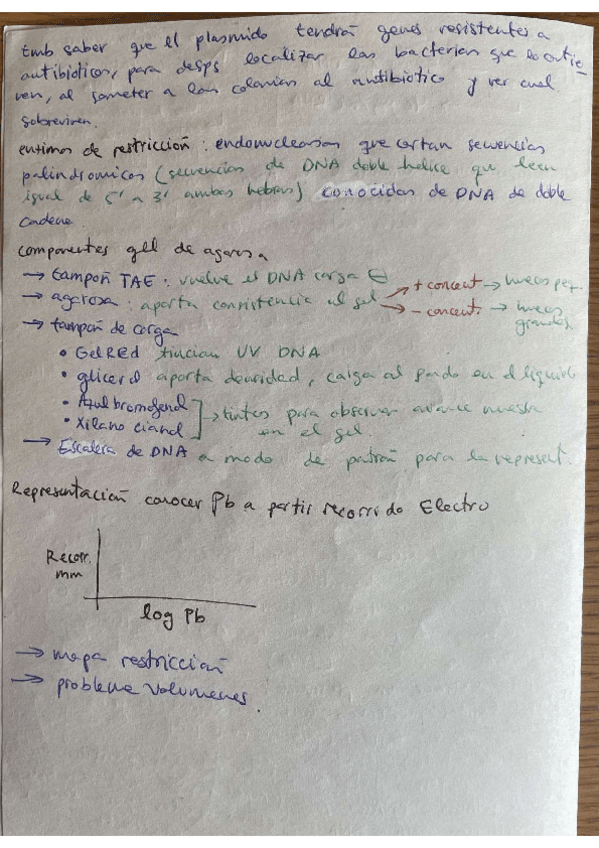 tmb saber que el plasmido tendrá genes resistentes a
antibioticos, para desps localizar las bacterias que lo contie-
nen, al someter a las colonias al antibiotico y ver cual
sobreviven.
enzimas de restricción : endonucleasas que cortan secuencias
palindromicas (secuencias de DNA doble helice que leen
igual de 5' a 3' ambas hebras) conocidas de DNA de doble
cadena
componentes gel de agarosa
→ tampoñ TAE : vuelve el DNA carga ⊖
→ agarosa : aporta consistencia al gel → + concent → huecos peq.
→ - concent. → huecos grandes.
→ tampoñ de carga
• GelRed tincion UV DNA
• glicerol aporta densidad, caiga al fondo en el liquido
• Azul bromofenol
• Xilano cianol ] → tintes para observar avance muestra
en el gel.
→ Escalera de DNA a modo de patrón para la represent.
Representación conocer Pb a partir recorrido Electro
Recorr.
mm
log Pb
→ mapa restricción
→ problema volumenes.